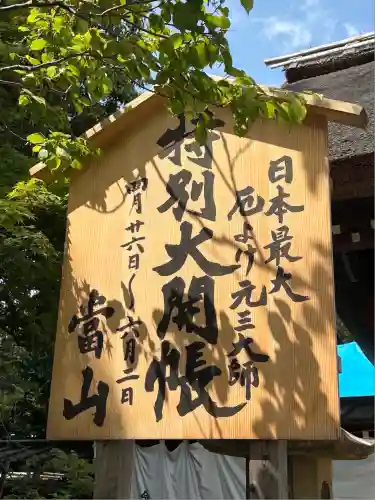 日本最大
厄より元三大師
特別大開帳
四月廿六日〜六月二日
当山